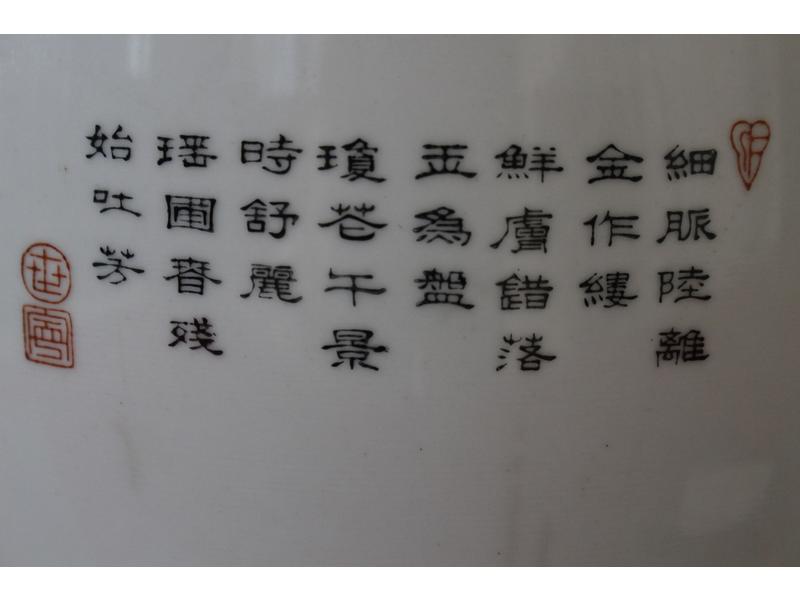 細脈陸離
金作縷
鮮膚錯落
玉為盤
瓊芲午景
時舒麗
瑶圃春殘
始吐芳